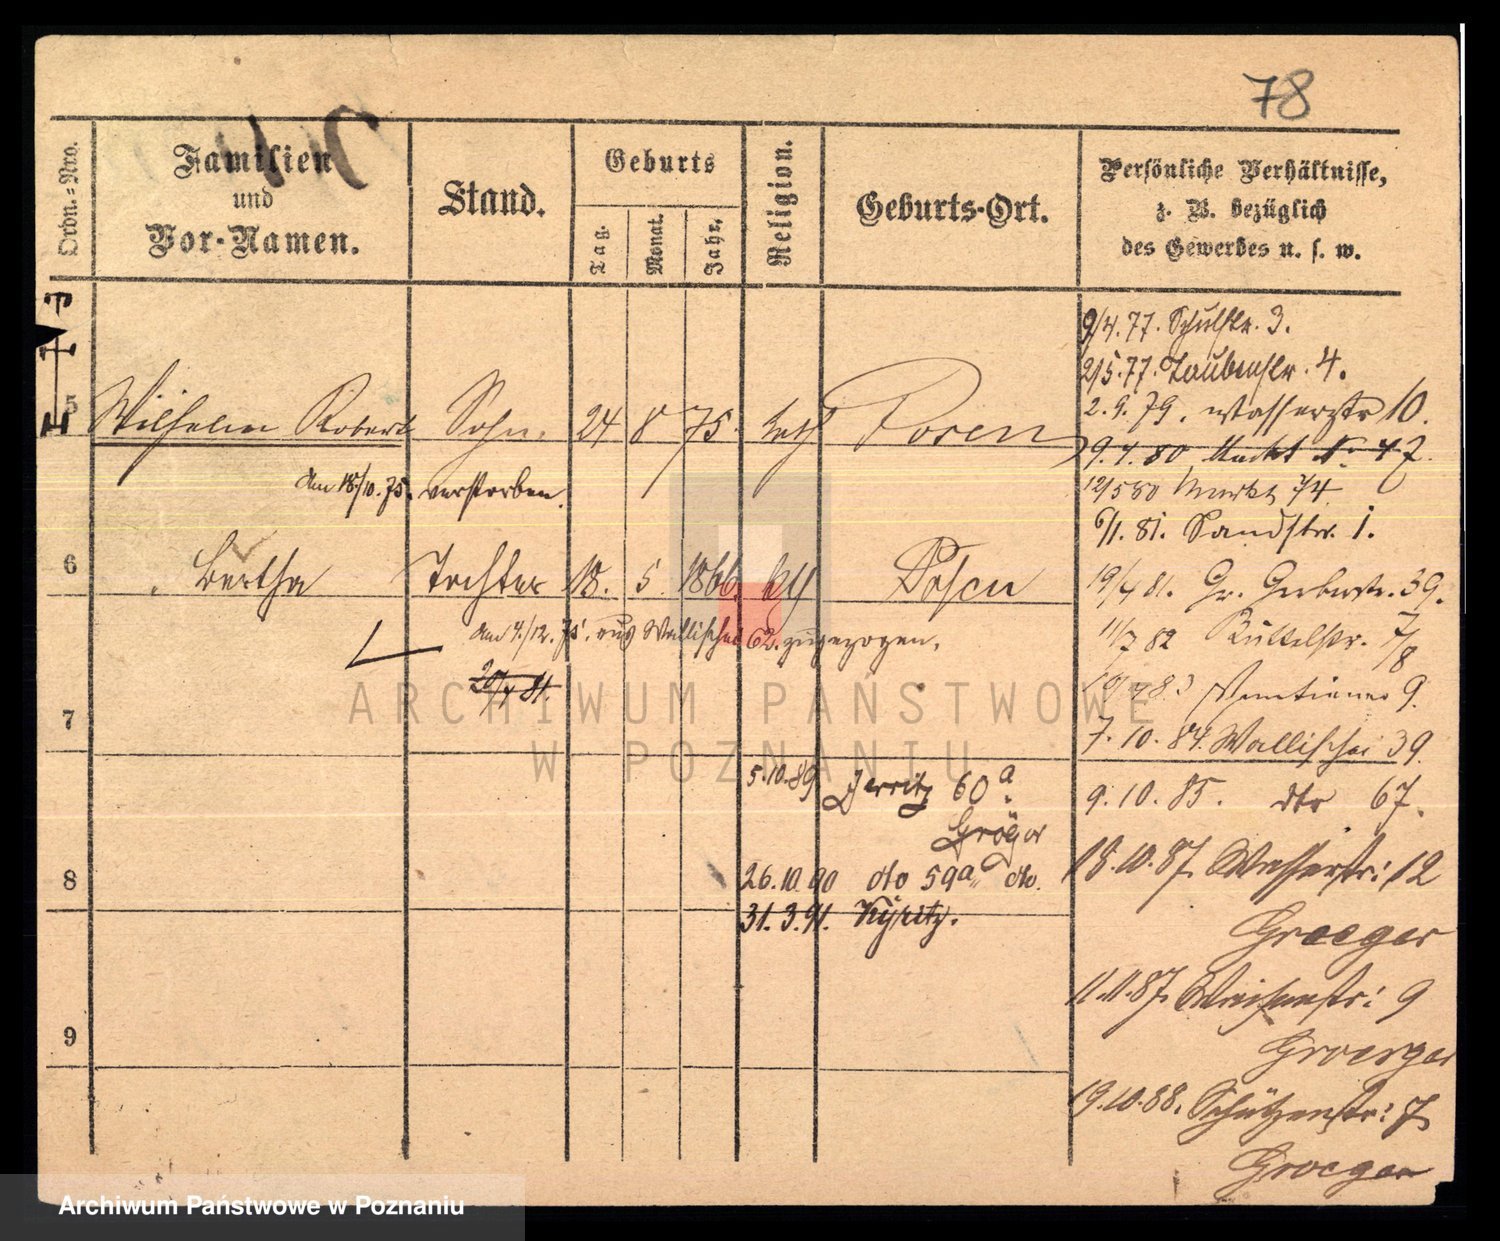 78
Ordn.-Nro.
Familien
und
Vor-Namen.
Stand.
Geburts
Tag.
Monat.
Jahr.
Religion.
Geburts-Ort.
Persönliche Verhältnisse,
z. B. bezüglich
des Gewerbes u. s. w.
9/4.77. Schulstr. 3.
2/5.77. Taubenstr. 4.
5 Wilhelm Robert Sohn. 24 8 75. kath Posen
2.9.79. Wasserstr 10.
9.4.80 Markt № 47.
am 18/10.75. verstorben.
12/5 80 Markt 74
6/1. 81. Sandstr. 1.
6 Bertha Tochter 18. 5. 1866 Posen
19/4 81. Gr. Gerberstr. 39.
am 4./12. 75. aus Wallischei 62. zugezogen.
11/7 82 Büttelstr. 7/8
20/4 81.
Venetianer 9.
7
7. 10. 84. Wallischei 39.
5.10.89 Jerzitz 60a.
Gröger
9. 10. 85. dto 67.
8
26.10.90 do 59a do.
18.10.87. Wasserstr: 12
31.3.91. Kyritz.
Groeger
11.11.87. 9
9
Groeger
19.10.88. Schützenstr: 7
Groeger
ARCHIWUM PAŃSTWOWE
W POZNANIU
Archiwum Państwowe w Poznaniu